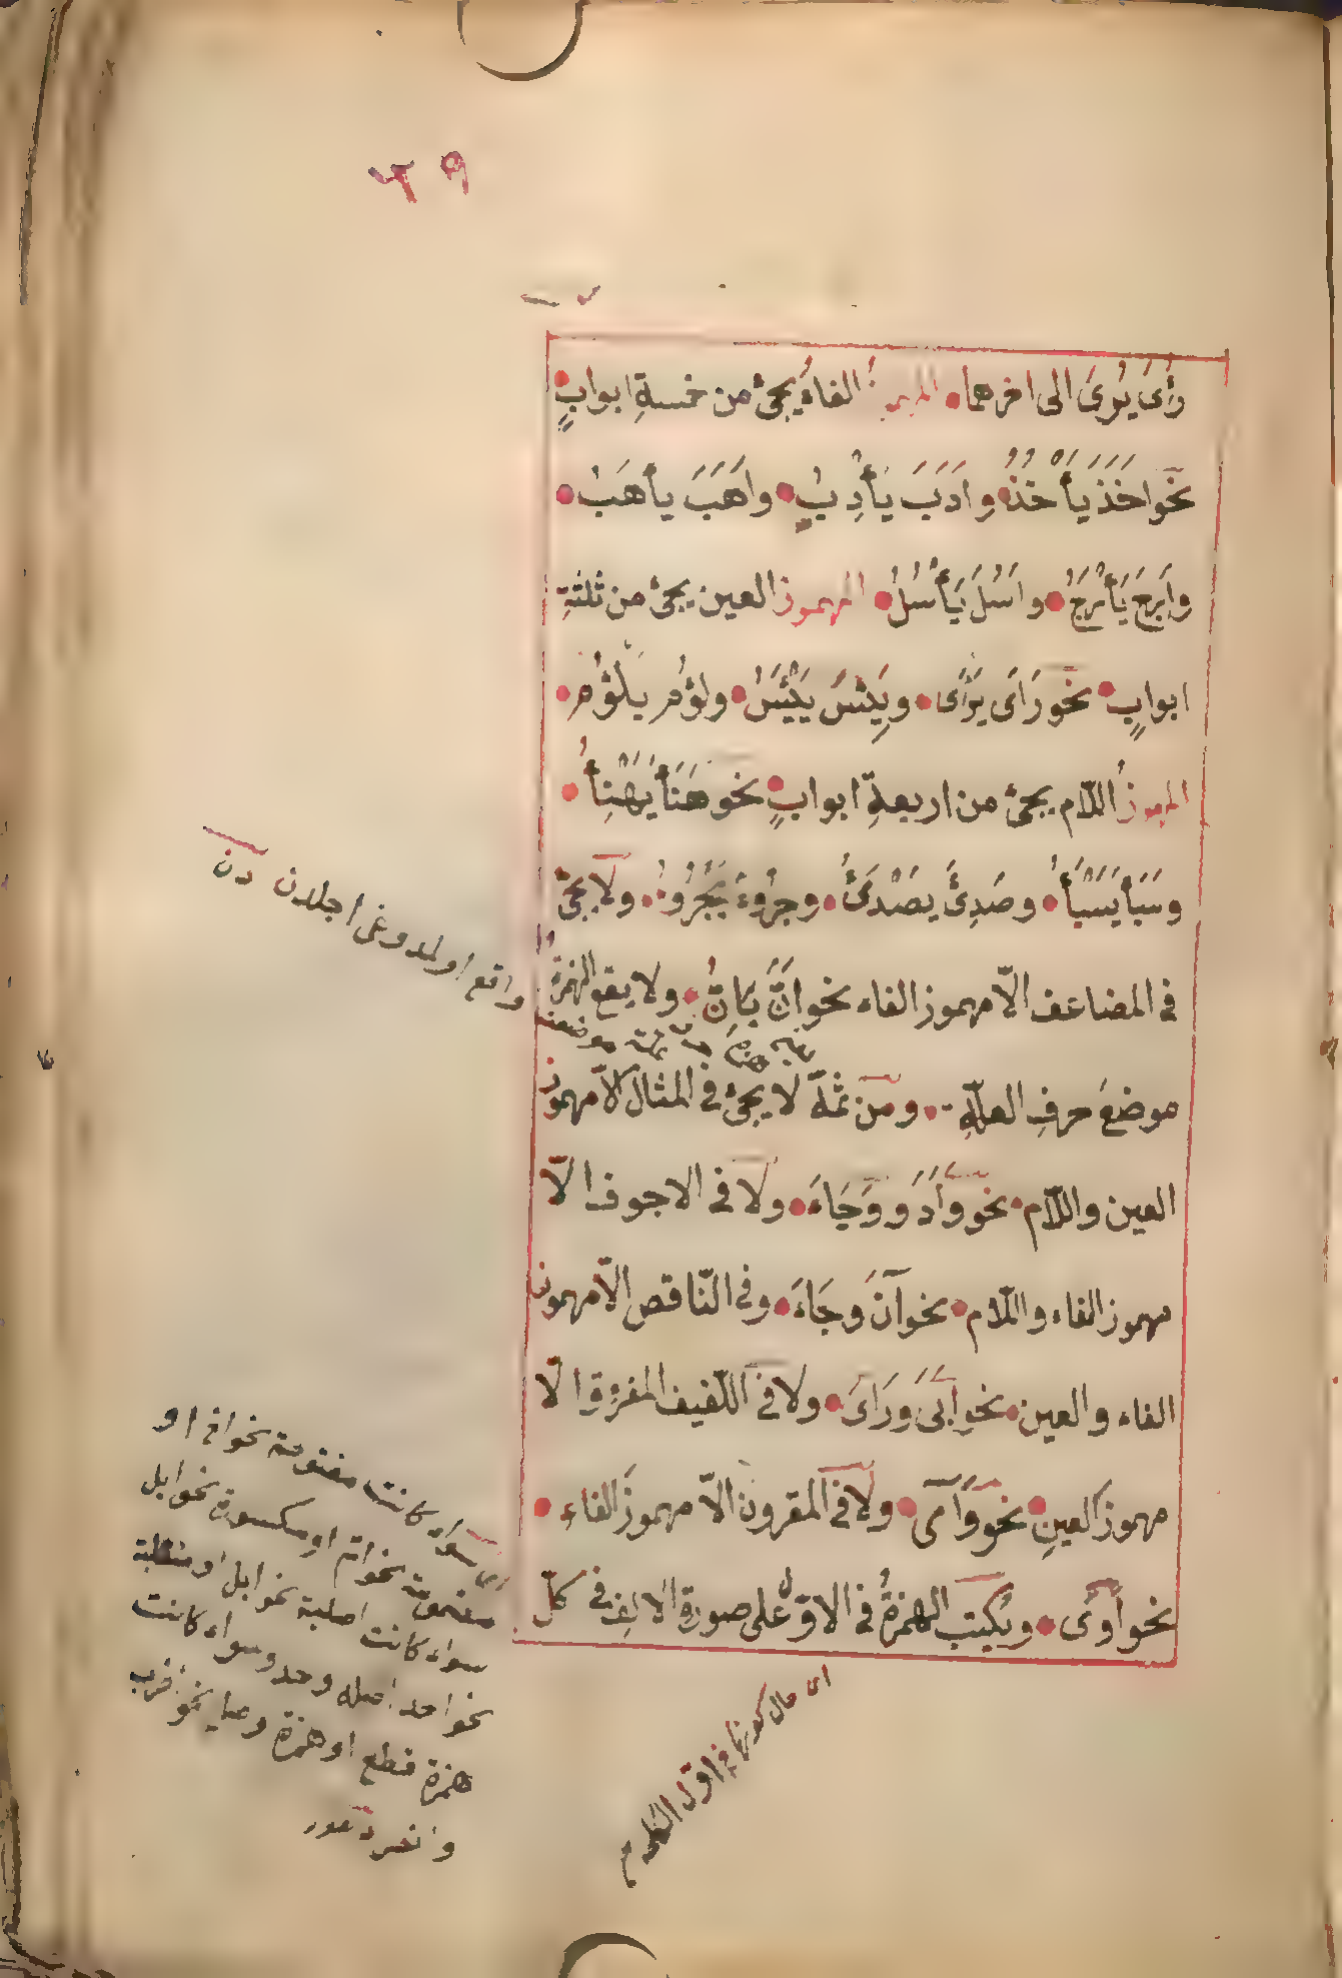 ٢٩
رُأَىَ يُرىَ الى اخرهما المهموز الفاءُ يجئُ من خمسةِ ابوابٍ
نحَو اخَذَ يأْخُذُ وادَبَ يَأْدِبُ واَهَبَ يأهَبُ
واَرِجَ يَأْرَجُ واَسُلَ يَأْسُلُ المهموز العين يجئُ من ثلثةِ
ابوابٍ نحَو رَاَى يَرْأَى ويَئِسَ يَيْئَسُ ولؤُم يلْؤُم
المهموزُ اللّام يجئُ من اربعةِ ابوابٍ نحو هَنَأَ يَهْنِأُ
وسَبَأَ يَسْبَأُ وصَدِئَ يصْدَئُ وجرُوءَ يَجْرُوءُ ولا يجئُ
فى المضاعف الّا مهموز الفاء نحو انَّ يَانُّ ولا يقع الهمزة
موضعَ حرفِ العلّةِ ومن ثمّة لا يجئُ فى المثال الّا مهموز
العين واللّام نحو وأدَ ووَجَاءَ ولا فى الاجوف الّا
مهموز الفاء واللّام نحو آنَ وجَاءَ وفى النّاقص الّا مهموز
الفاء والعين نحو ابَىَ ورَاىَ ولا فى اللّفيف المفرُوق الّا
مهموز العينِ نحو وَأَى ولا فى المقرون الّا مهموزَ الفاء
نحو أَوَى ويُكتب الهمزةُ فى الاوّل على صورة الالِف فى كلّ
واقع اولمدوغى اجلدن
اى سواء كانت مفتوحة نحو اخ او
مضمومة نحو ام او مكسورة نحو ابل
سواء كانت اصلية نحو ابل او منقلبة
نحو احد اصله وحد وسواء كانت
همزة قطع او همزة وصل نحو اضرب
اى حال كونها فى اوّل الكلمة